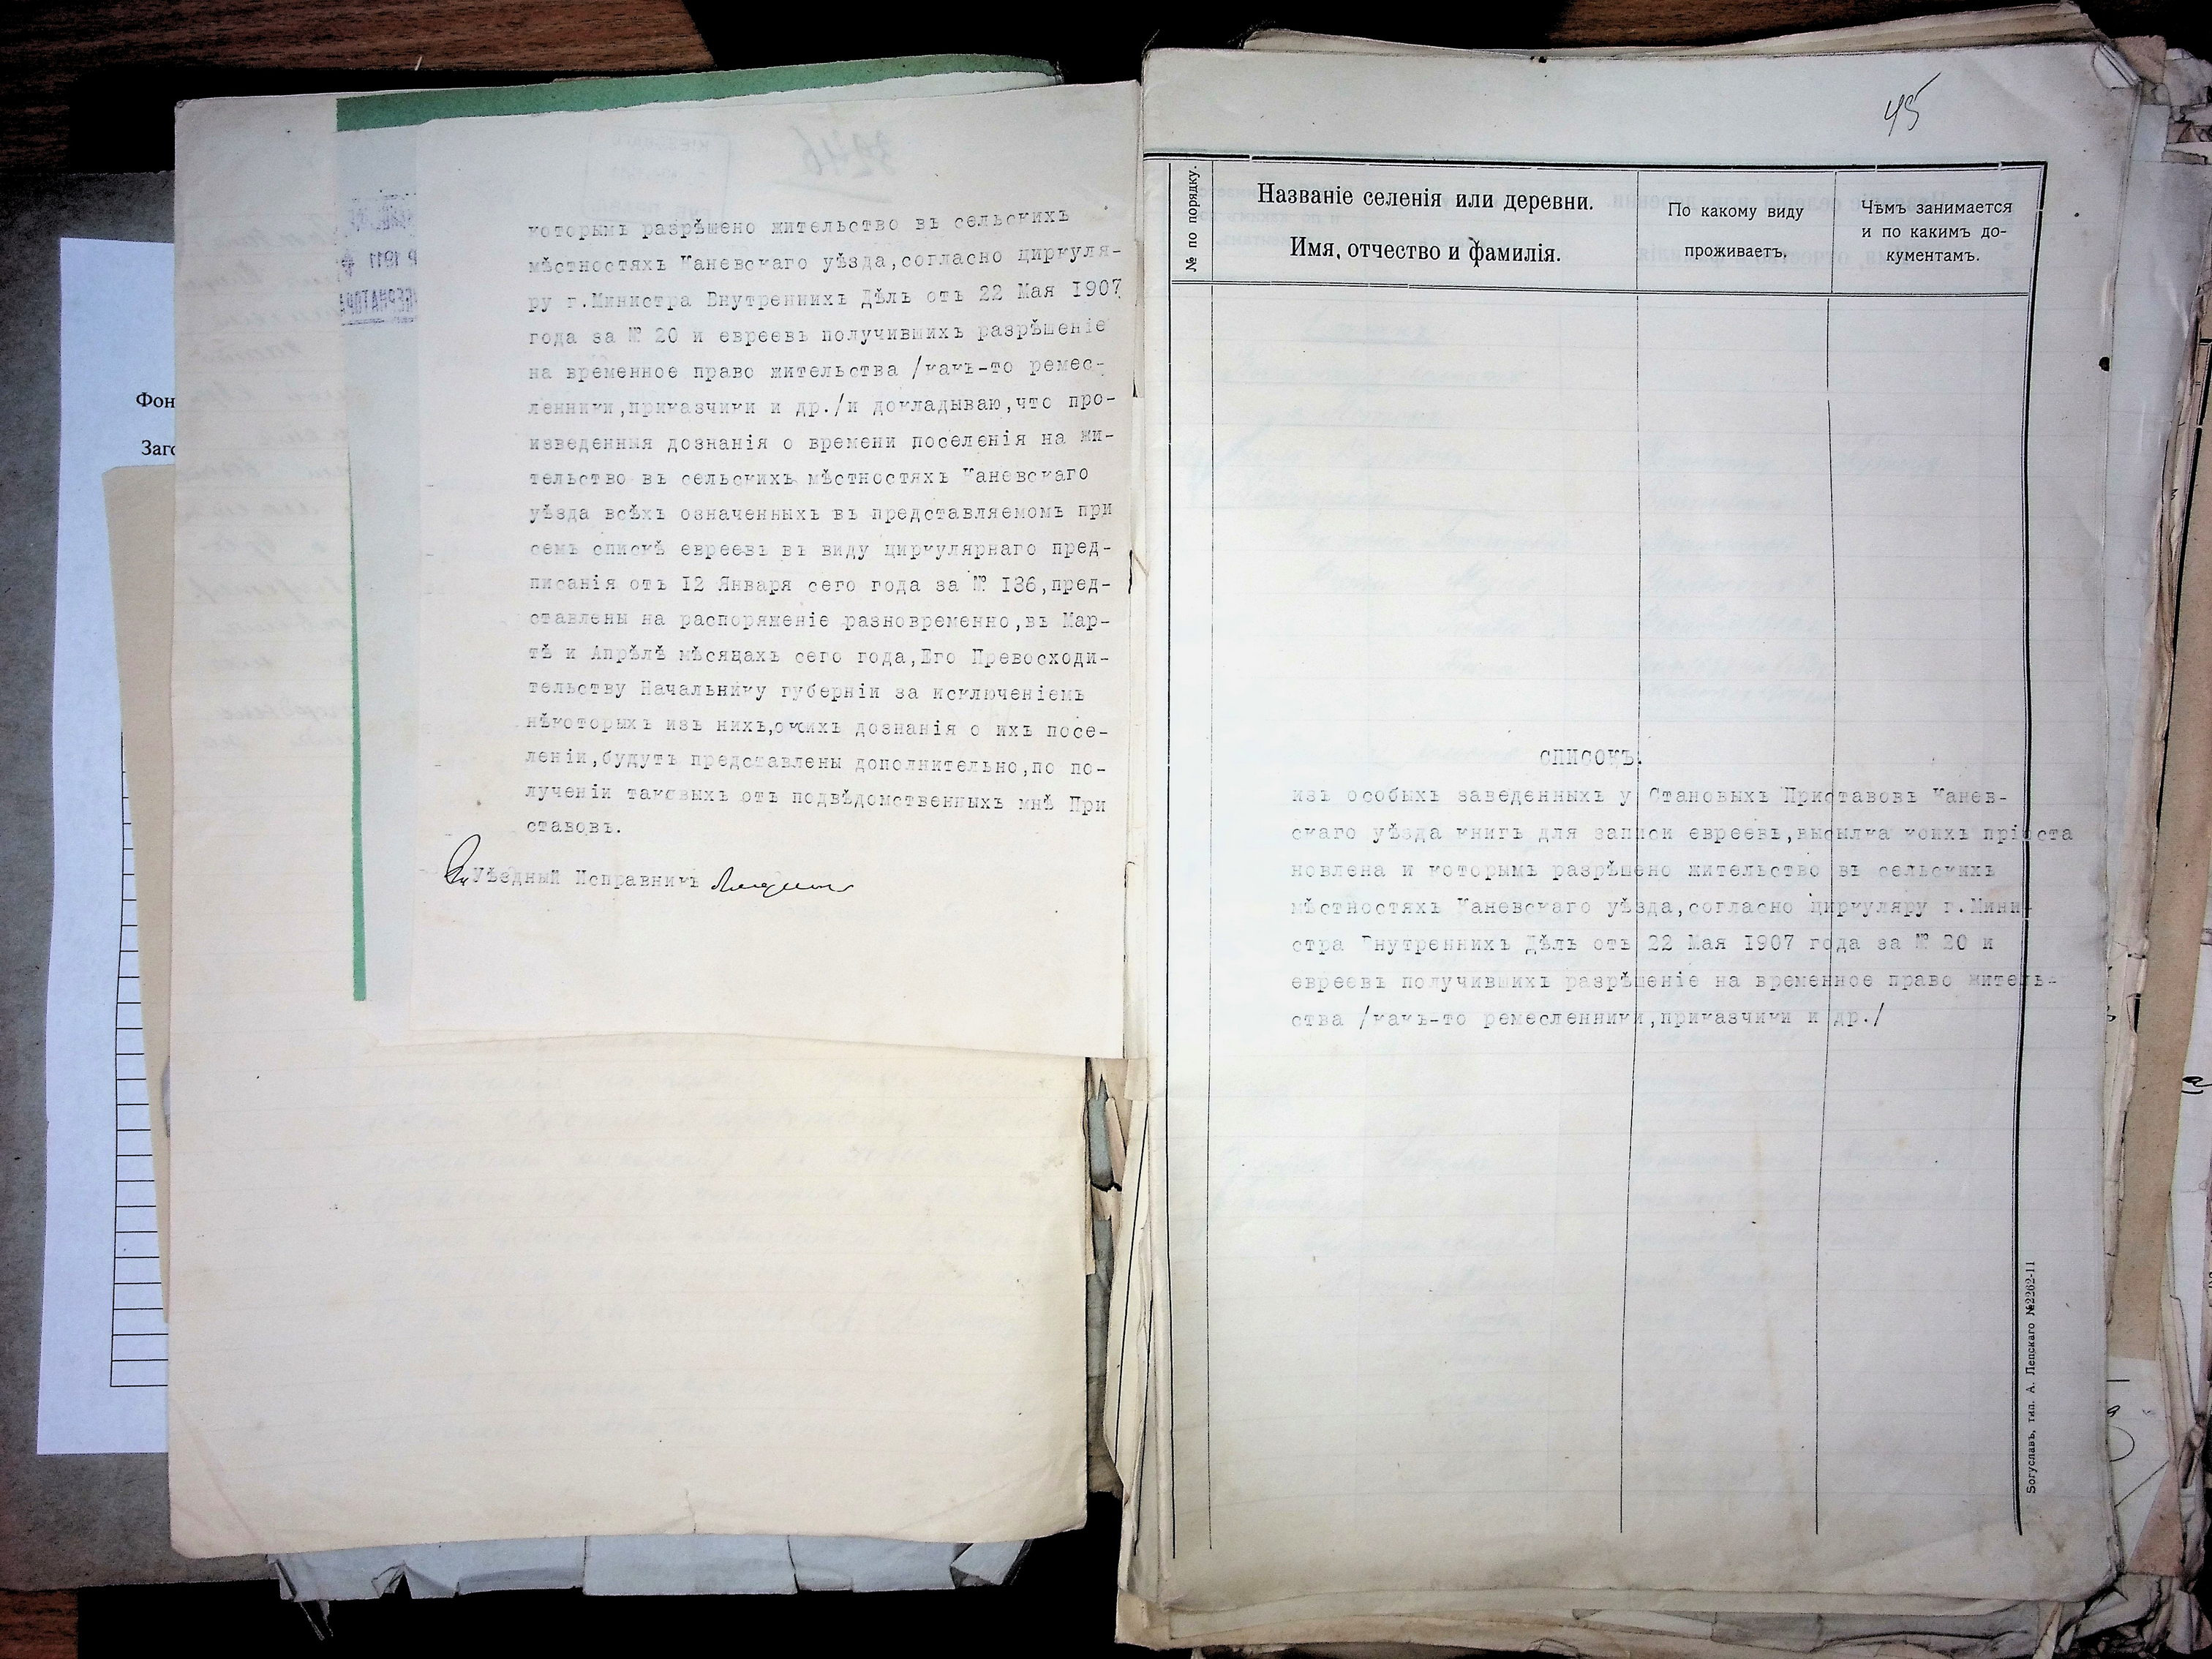 Фон
Заго
которымъ разрѣшено жительство въ сельскихъ
мѣстностяхъ Каневскаго уѣзда,согласно циркуля-
ру г.Министра Внутреннихъ Дѣлъ отъ 22 Мая 1907
года за № 20 и евреевъ получившихъ разрѣшеніе
на временное право жительства /какъ-то ремес-
ленники,приказчики и др./и докладываю,что про-
изведенныя дознанія о времени поселенія на жи-
тельство въ сельскихъ мѣстностяхъ Каневскаго
уѣзда всѣхъ означенныхъ въ представляемомъ при
семъ спискѣ евреевъ въ виду циркулярнаго пред-
писанія отъ 12 Января сего года за № 136,пред-
ставлены на распоряженіе разновременно,въ Мар-
тѣ и Апрѣлѣ мѣсяцахъ сего года,Его Превосходи-
тельству Начальнику губерніи за исключеніемъ
нѣкоторыхъ изъ нихъ,о коихъ дознанія о ихъ посе-
леніи,будутъ представлены дополнительно,по по-
лученіи таковыхъ отъ подвѣдомственныхъ мнѣ При
ставовъ.
Уѣздный Исправникъ
45
№ по порядку.
Названіе селенія или деревни.
Имя, отчество и фамилія.
По какому виду
проживаетъ.
Чѣмъ занимается
и по какимъ до-
кументамъ.
СПИСОКЪ.
изъ особыхъ заведенныхъ у Становыхъ Приставовъ Канев-
скаго уѣзда книгъ для записи евреевъ,высылка коихъ пріоста
новлена и которымъ разрѣшено жительство въ сельскихъ
мѣстностяхъ Каневскаго уѣзда,согласно циркуляру г.Мини-
стра Внутреннихъ Дѣлъ отъ 22 Мая 1907 года за № 20 и
евреевъ получившихъ разрѣшеніе на временное право житель-
ства /какъ-то ремесленники,приказчики и др./
Богуславъ, тип. А. Лепскаго №2262-11